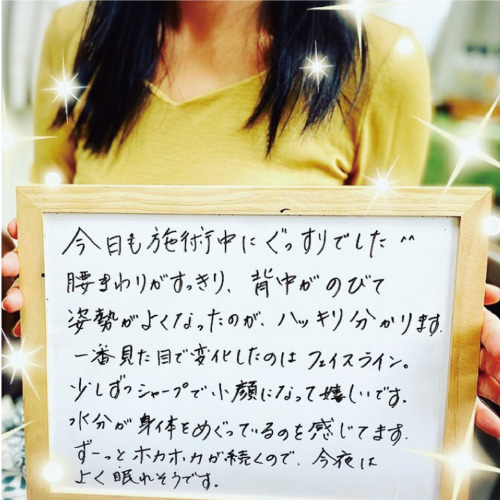 今日も施術中にぐっすりでした^^
腰まわりがすっきり、背中がのびて
姿勢がよくなったのが、ハッキリ分かります.
一番見た目で変化したのはフェイスライン。
少しずつシャープで小顔になって嬉しいです。
水分が身体をめぐっているのを感じてます.
ずーっとホカホカが続くので、今夜は
よく眠れそうです。